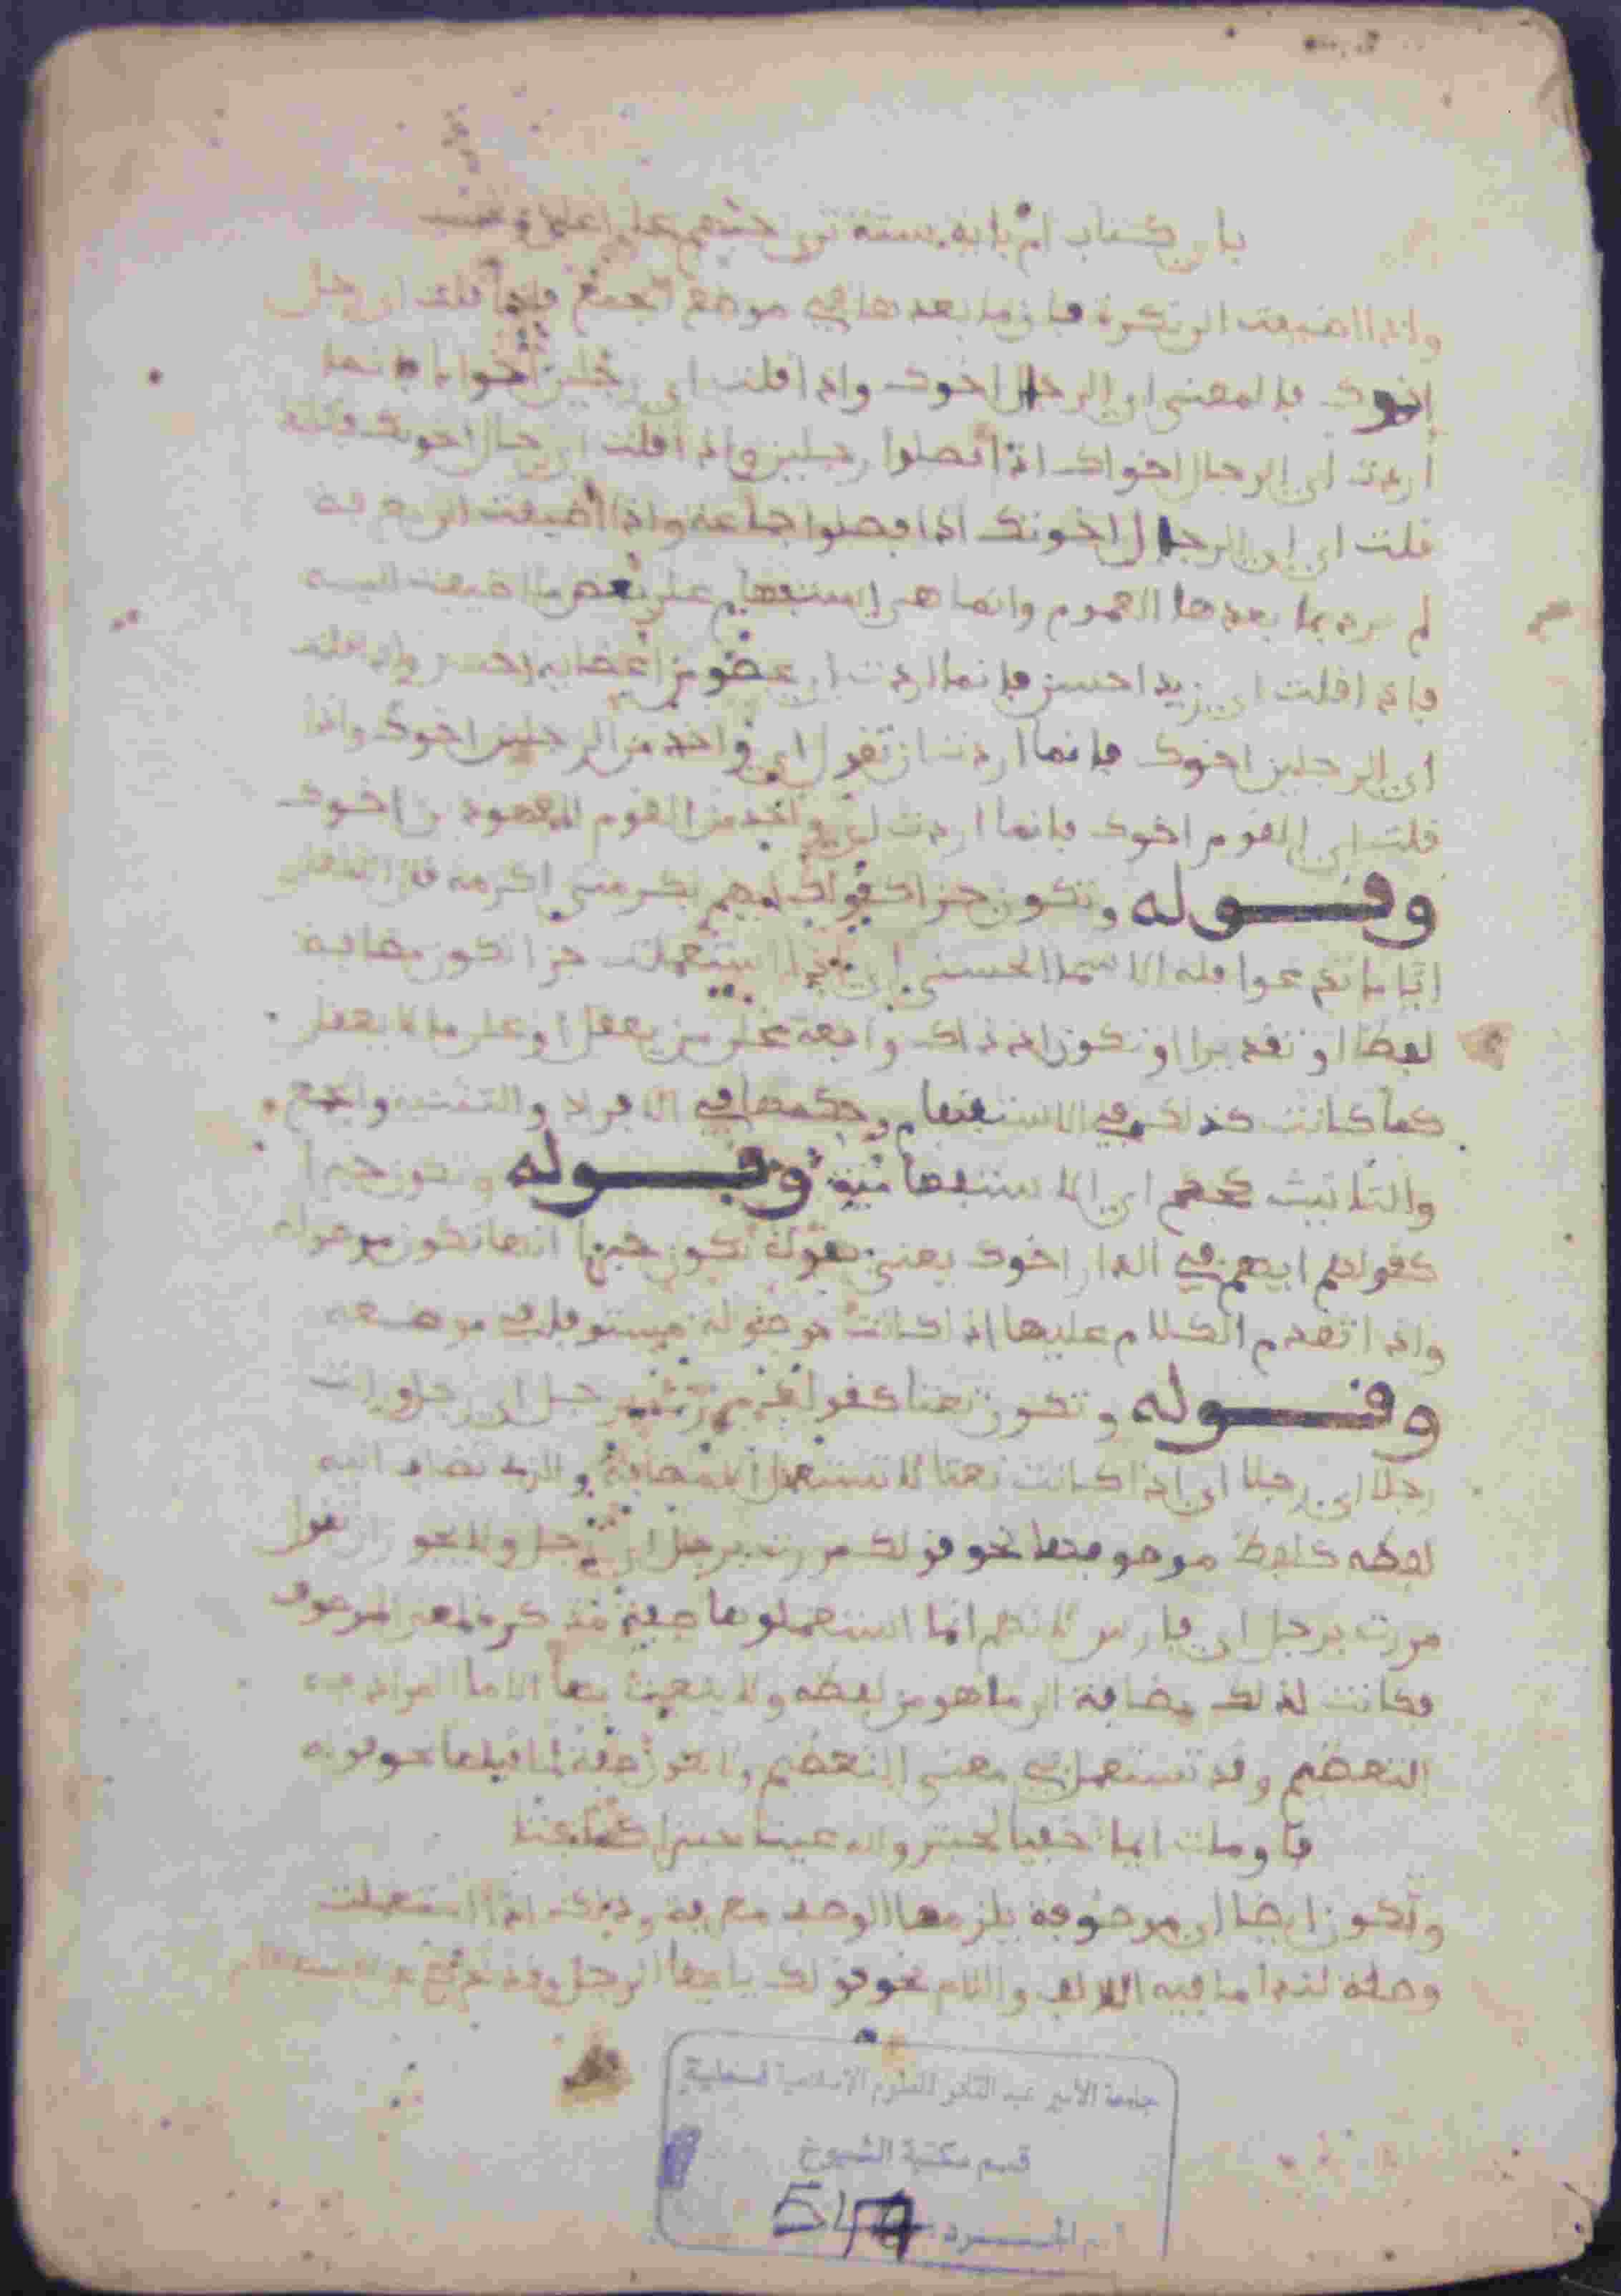 باي كتاب ام باية سنة ترى حبهم علي
واذا اضيفت الى نكرة فان ما بعدها في موضع الجمع فاذا قلت اي رجل
اخوك فالمعنى اي الرجال اخوك واذا قلت اي رجلين اخواك فانما
اردت اي الرجال اخواك اذا فصلوا رجلين واذا قلت اي رجال اخوتك فكانك
قلت اي الرجال اخوتك اذا فصلوا جماعة واذا اضيفت الى معرفة
لم يرد بما بعدها العموم وانما هي استفهام على بعض ما اضيفت اليه
فاذا قلت اي زيد احسن فانما اردت اي عضو من اعضايه احسن واذا قلت
اي الرجلين اخوك فانما اردت ان تقول اي واحد من الرجلين اخوك واذا
قلت اي القوم اخوك فانما اردت اي واحد من القوم المعهودين اخوك
وقوله وتكون جزا كقولك ايهم يكرمني اكرمه قال الله تعالى
ايا ما تدعوا فله الاسما الحسنى اي اذا استعملت جزا تكون مضافة
لفظا او تقديرا او تكون اذ ذاك واقعة على من يعقل او على ما لا يعقل
كما كانت كذلك في الاستفهام وحكمها في الافراد والتثنية والجمع
والتانيث كحكم اي الاستفهامية وقوله وتكون خبرا
كقولهم ايهم في الدار اخوك يعني بقوله تكون خبرا انها تكون موصولة
واذا تقدم الكلام عليها اذا كانت موصولة مستوفى في موضعه
وقوله وتكون نعتا كقولك مررت برجل اي رجل ورايت
رجلا اي رجلا اي اذا كانت نعتا لا تستعمل الا مضافة والذي تضاف اليه
لفظه كلفظ موصوفها نحو قولك مررت برجل اي رجل ولا يجوز ان تقول
مررت برجل اي فارس لانهم انما استعملوها صفة مذكرة لمعنى الموصوف
فكانت لذلك مضافة الى ما هو من لفظه ولا ينعت بها الا ما المراد به
التعظيم وقد تستعمل في معنى التعظيم ولا تكون صفة لما قبلها نحو قوله
فاومات ايما خفيا لحبتر ولله عينا حبتر ايما فتى
وتكون ايضا اي موصوفة يلزمها الوصف معرفة وذلك اذا استعملت
وصلة لندا ما فيه الالف واللام نحو قولك يا ايها الرجل وقد
جامعة الأمير عبد القادر للعلوم الإسلامية قسنطينة
قسم مكتبة الشيوخ
رقم الجرد: 549